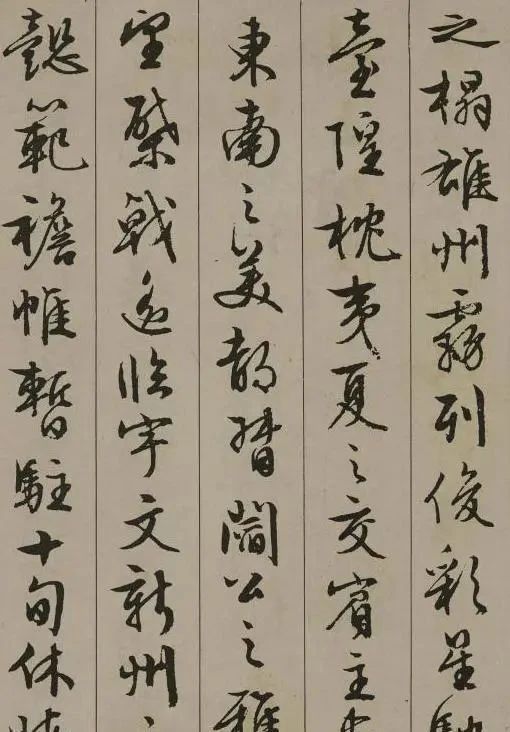 之榻雄州霧列俊彩星馳
臺隍枕夷夏之交賓主
東南之美都督閻公之雅
望棨戟遙臨宇文新州
懿範襜帷暫駐十旬休